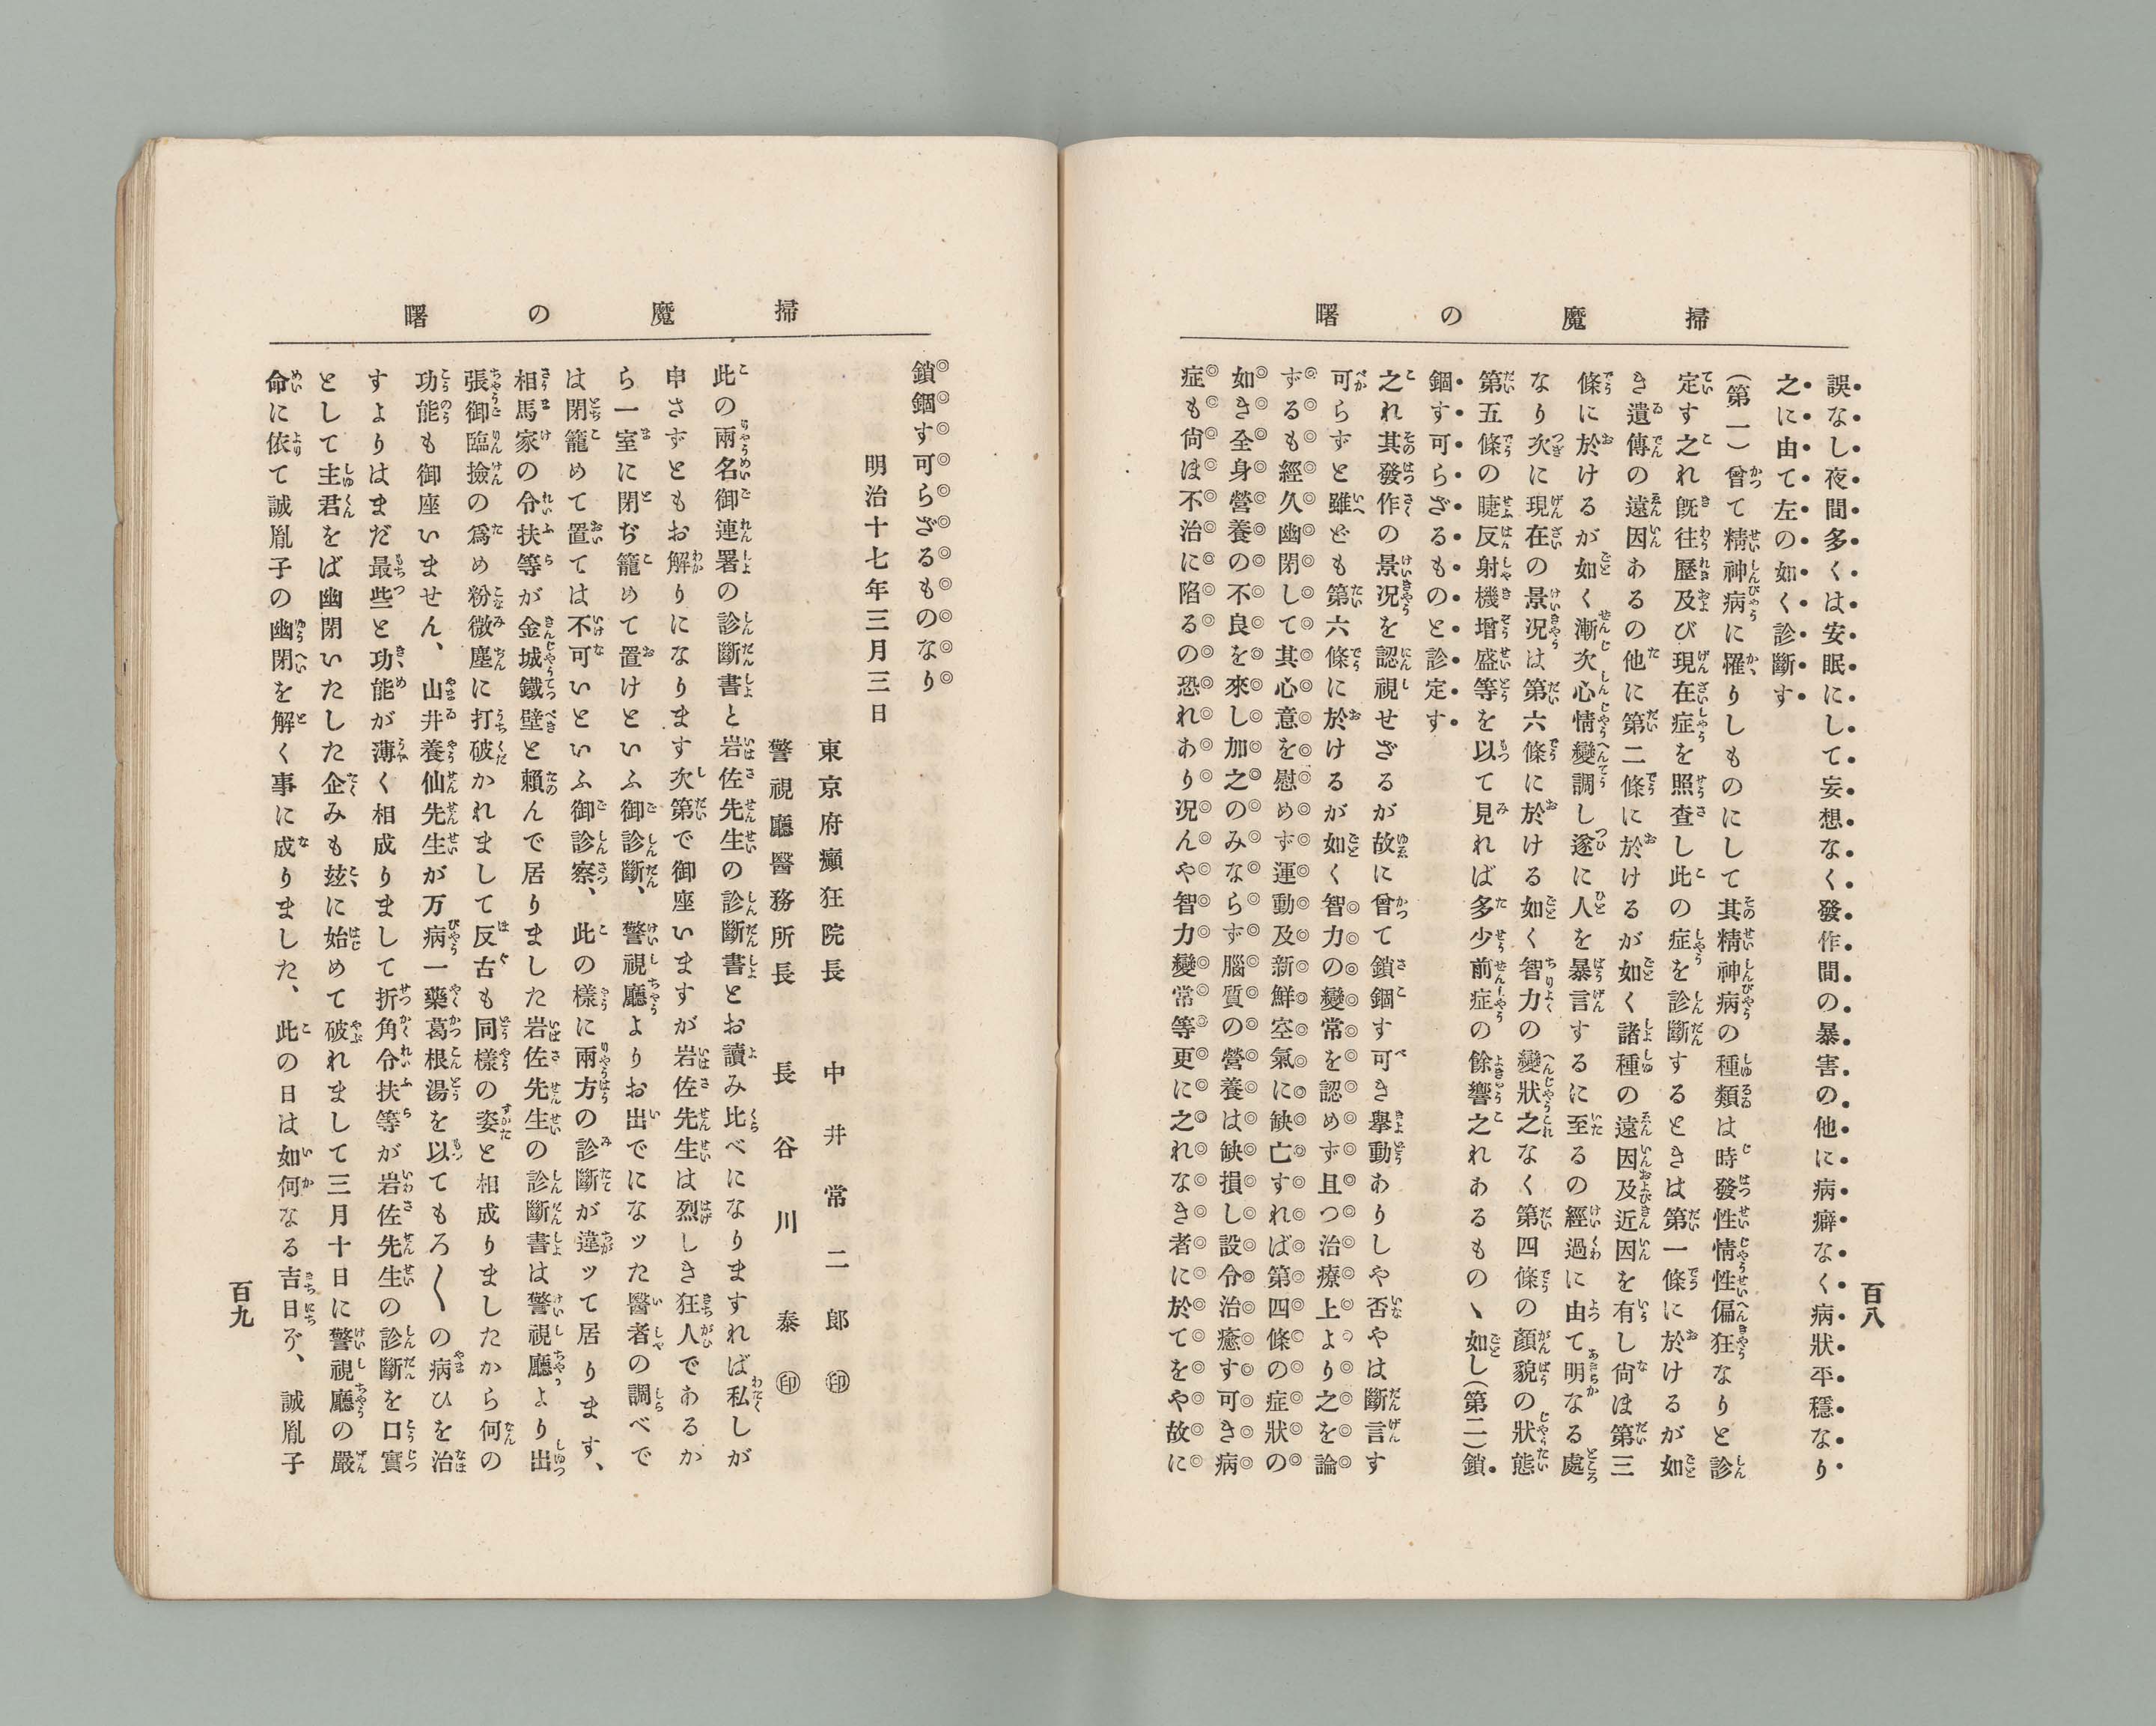 掃魔の曙
誤なし夜間多くは安眠にして妄想なく發作間の暴害の他に病癖なく病狀平穩なり
之に由て左の如く診斷す
(第一)曾て精神病に罹りしものにして其精神病の種類は時發性情性偏狂なりと診
定す之れ既往歷及び現在症を照査し此の症を診斷するときは第一條に於けるが如
き遺傳の遠因あるの他に第二條に於けるが如く諸種の遠因及近因を有し尙ほ第三
條に於けるが如く漸次心情變調し遂に人を暴言するに至るの經過に由て明なる處
なり次に現在の景況は第六條に於ける如く智力の變狀之なく第四條の顏貌の狀態
第五條の睫反射機增盛等を以て見れば多少前症の餘響之れあるものヽ如し(第二)鎖
錮す可らざるものと診定す
之れ其發作の景況を認視せざるが故に曾て鎖錮す可き擧動ありしや否やは斷言す
可らずと雖ども第六條に於けるが如く智力の變常を認めず且つ治療上より之を論
ずるも經久幽閉して其心意を慰めず運動及新鮮空氣に缺亡すれば第四條の症狀の
如き全身營養の不良を來し加之のみならず腦質の營養は缺損し設令治癒す可き病
症も尙ほ不治に陷るの恐れあり況んや智力變常等更に之れなき者に於てをや故に
百八
掃魔の曙
鎖錮す可らざるものなり
明治十七年三月三日
東京府癲狂院長 中井常二郎㊞
警視廳醫務所長 長谷川泰㊞
此の兩名御連署の診斷書と岩佐先生の診斷書とお讀み比べになりますれば私しが
申さずともお解りになります次第で御座いますが岩佐先生は烈しき狂人であるか
ら一室に閉ぢ籠めて置けといふ御診斷、警視廳よりお出でになッた醫者の調べで
は閉籠めて置ては不可いといふ御診察、此の樣に兩方の診斷が違ッて居ります、
相馬家の令扶等が金城鐵壁と賴んで居りました岩佐先生の診斷書は警視廳より出
張御臨撿の爲め粉微塵に打破かれまして反古も同樣の姿と相成りましたから何の
功能も御座いません、山井養仙先生が万病一藥葛根湯を以てもろ〱の病ひを治
すよりはまだ最些と功能が薄く相成りまして折角令扶等が岩佐先生の診斷を口實
として主君をば幽閉いたした企みも玆に始めて破れまして三月十日に警視廳の嚴
命に依て誠胤子の幽閉を解く事に成りました、此の日は如何なる吉日ぞ、誠胤子
百九